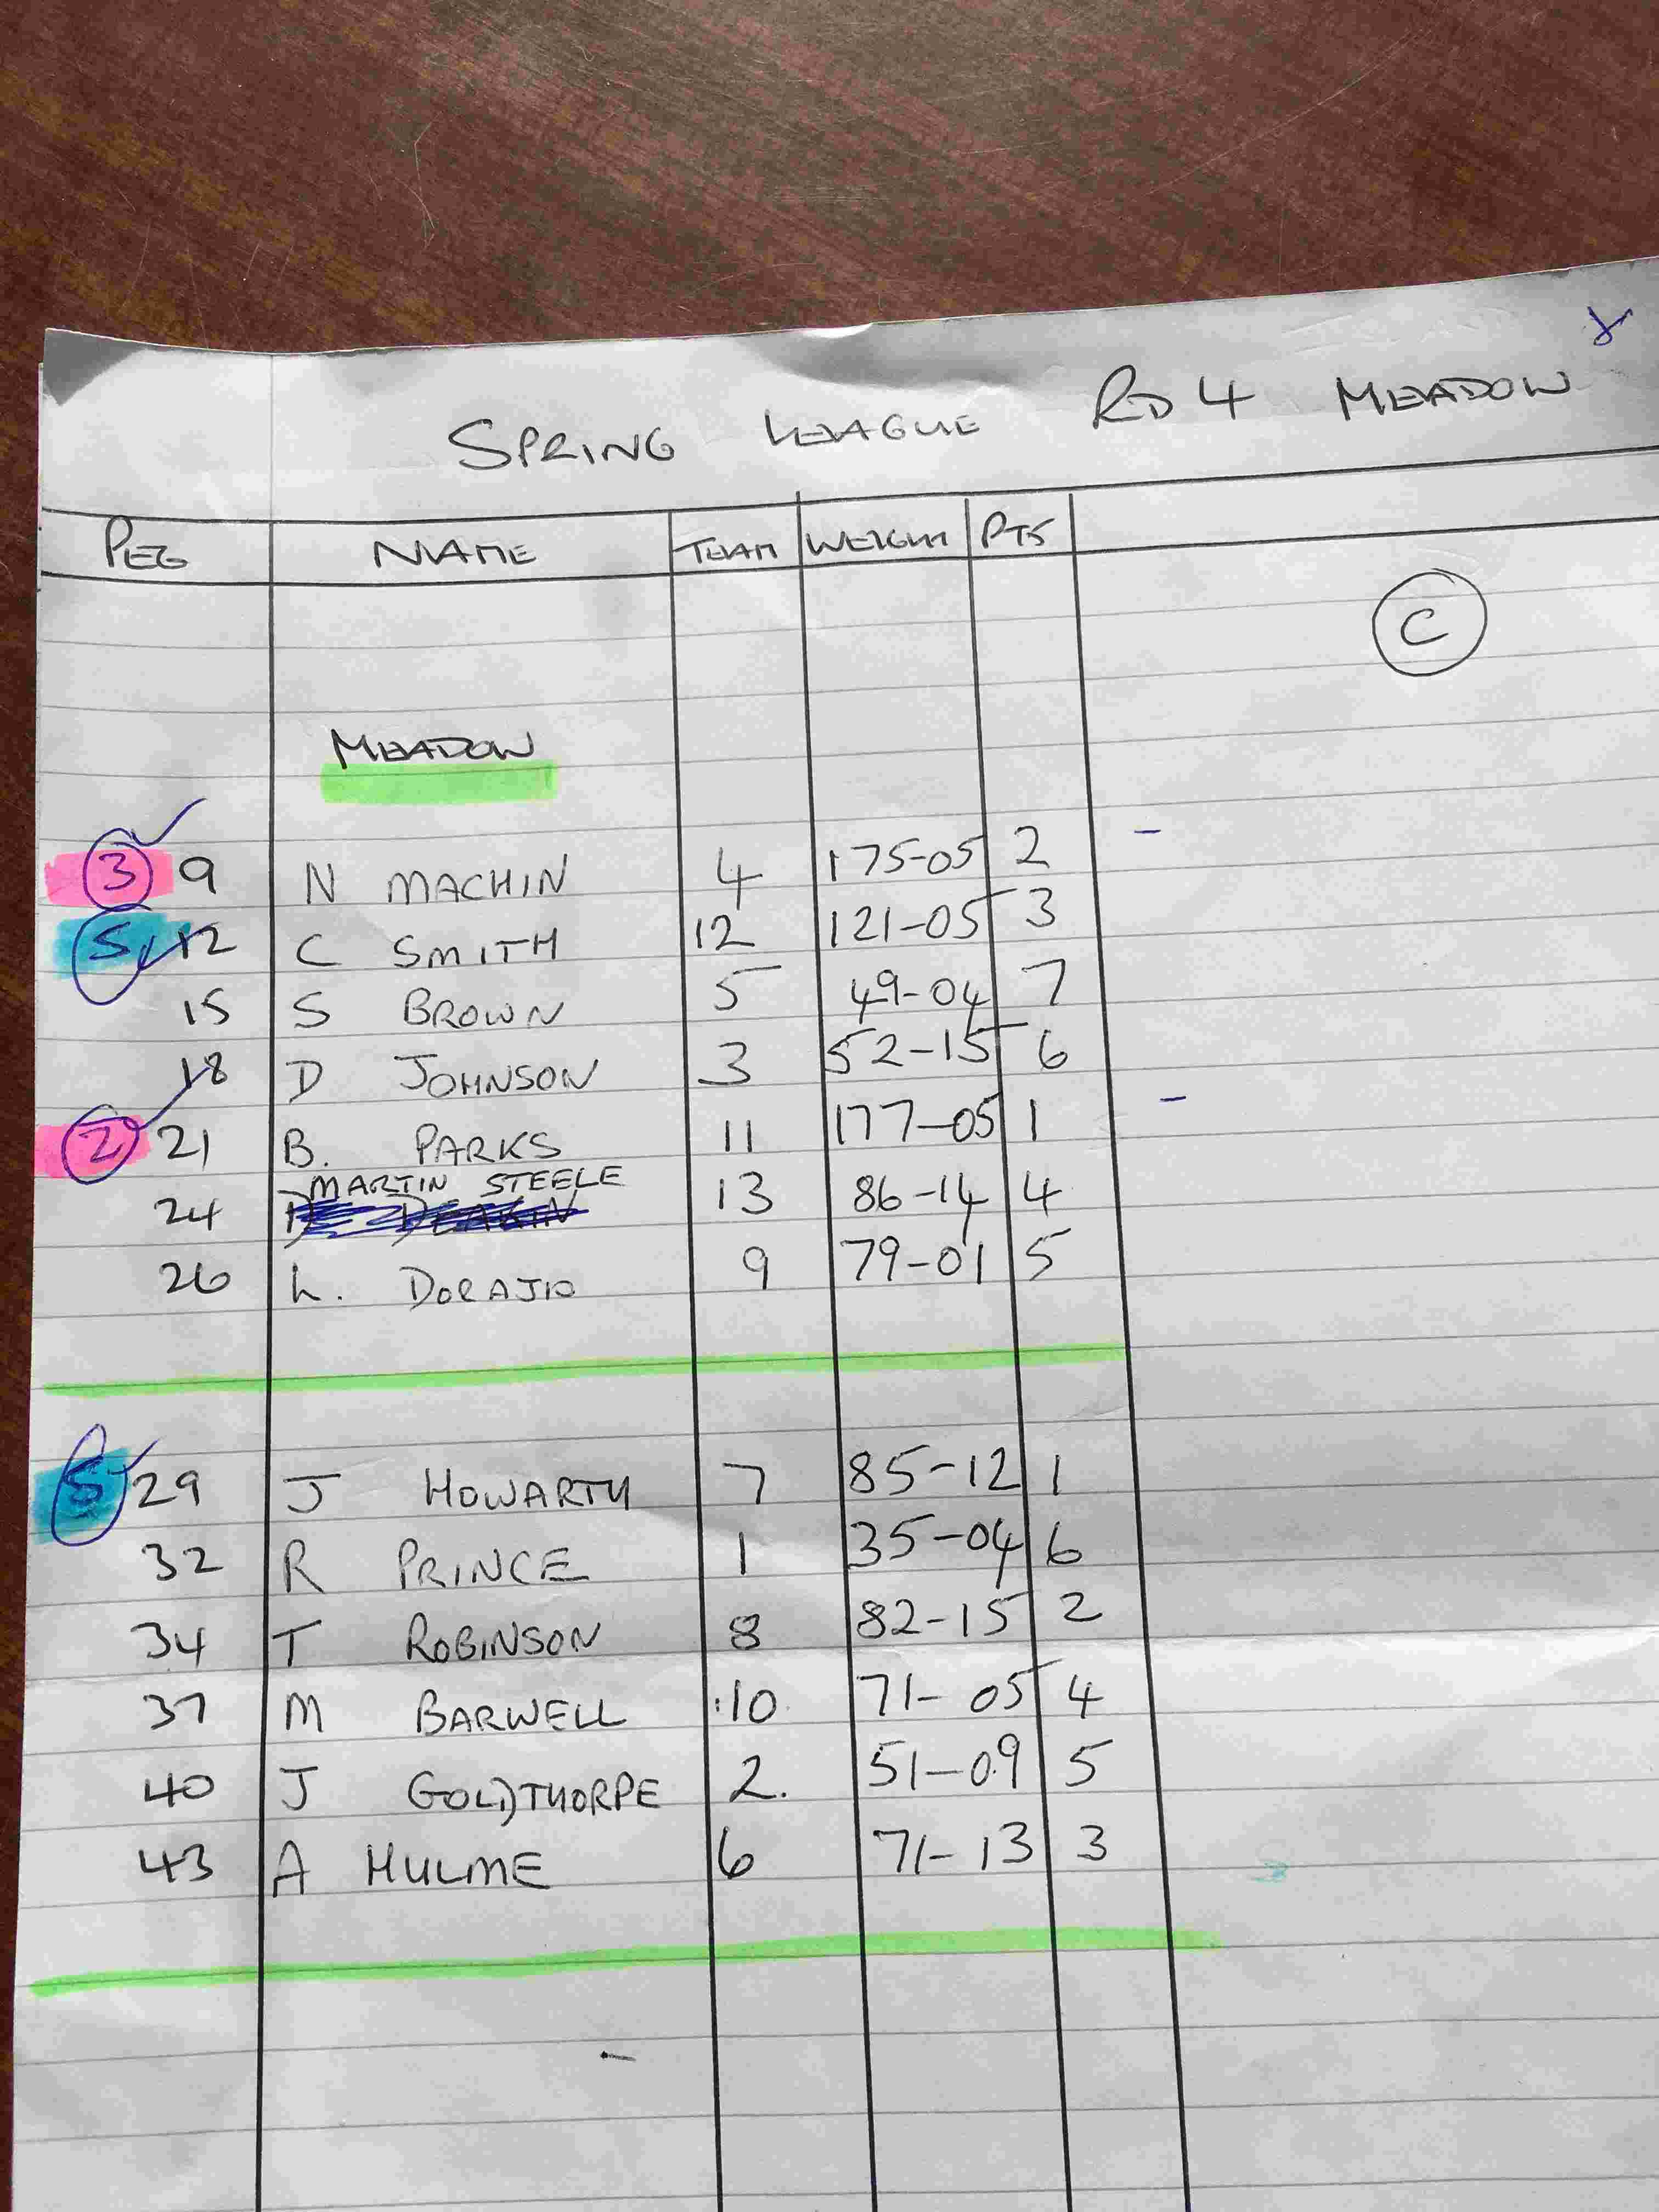 SPRING LEAGUE RD 4 MEADOW
PEG NAME TEAM WEIGHT PTS
C
MEADOW
3 9 N MACHIN 4 175-05 2 -
5 12 C SMITH 12 121-05 3
15 S BROWN 5 49-04 7
18 D JOHNSON 3 52-15 6
2 21 B. PARKS 11 177-05 1 -
MARTIN STEELE
24 D DEAKIN 13 86-14 4
26 L. DORAJIO 9 79-01 5
5 29 J HOWARTH 7 85-12 1
32 R PRINCE 1 35-04 6
34 T ROBINSON 8 82-15 2
37 M BARWELL 10 71-05 4
40 J GOLDTHORPE 2. 51-09 5
43 A HULME 6 71-13 3